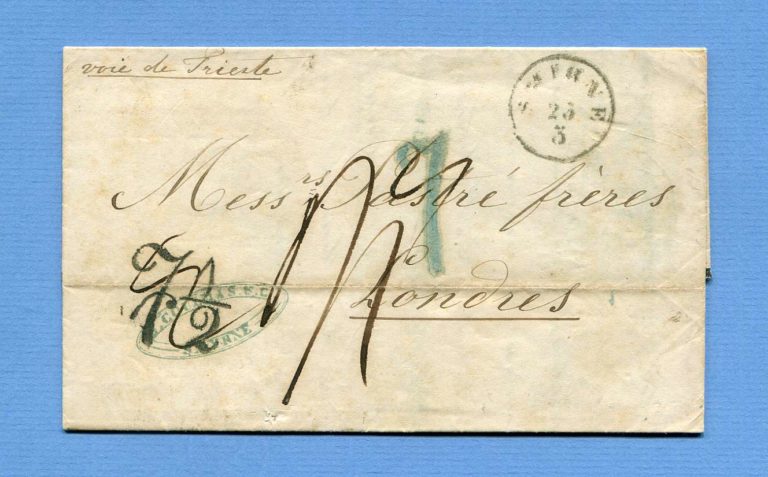 voie de Trieste
SMIRNE
23
5
7
Mess.rs Pastré frères
Londres
SMYRNE